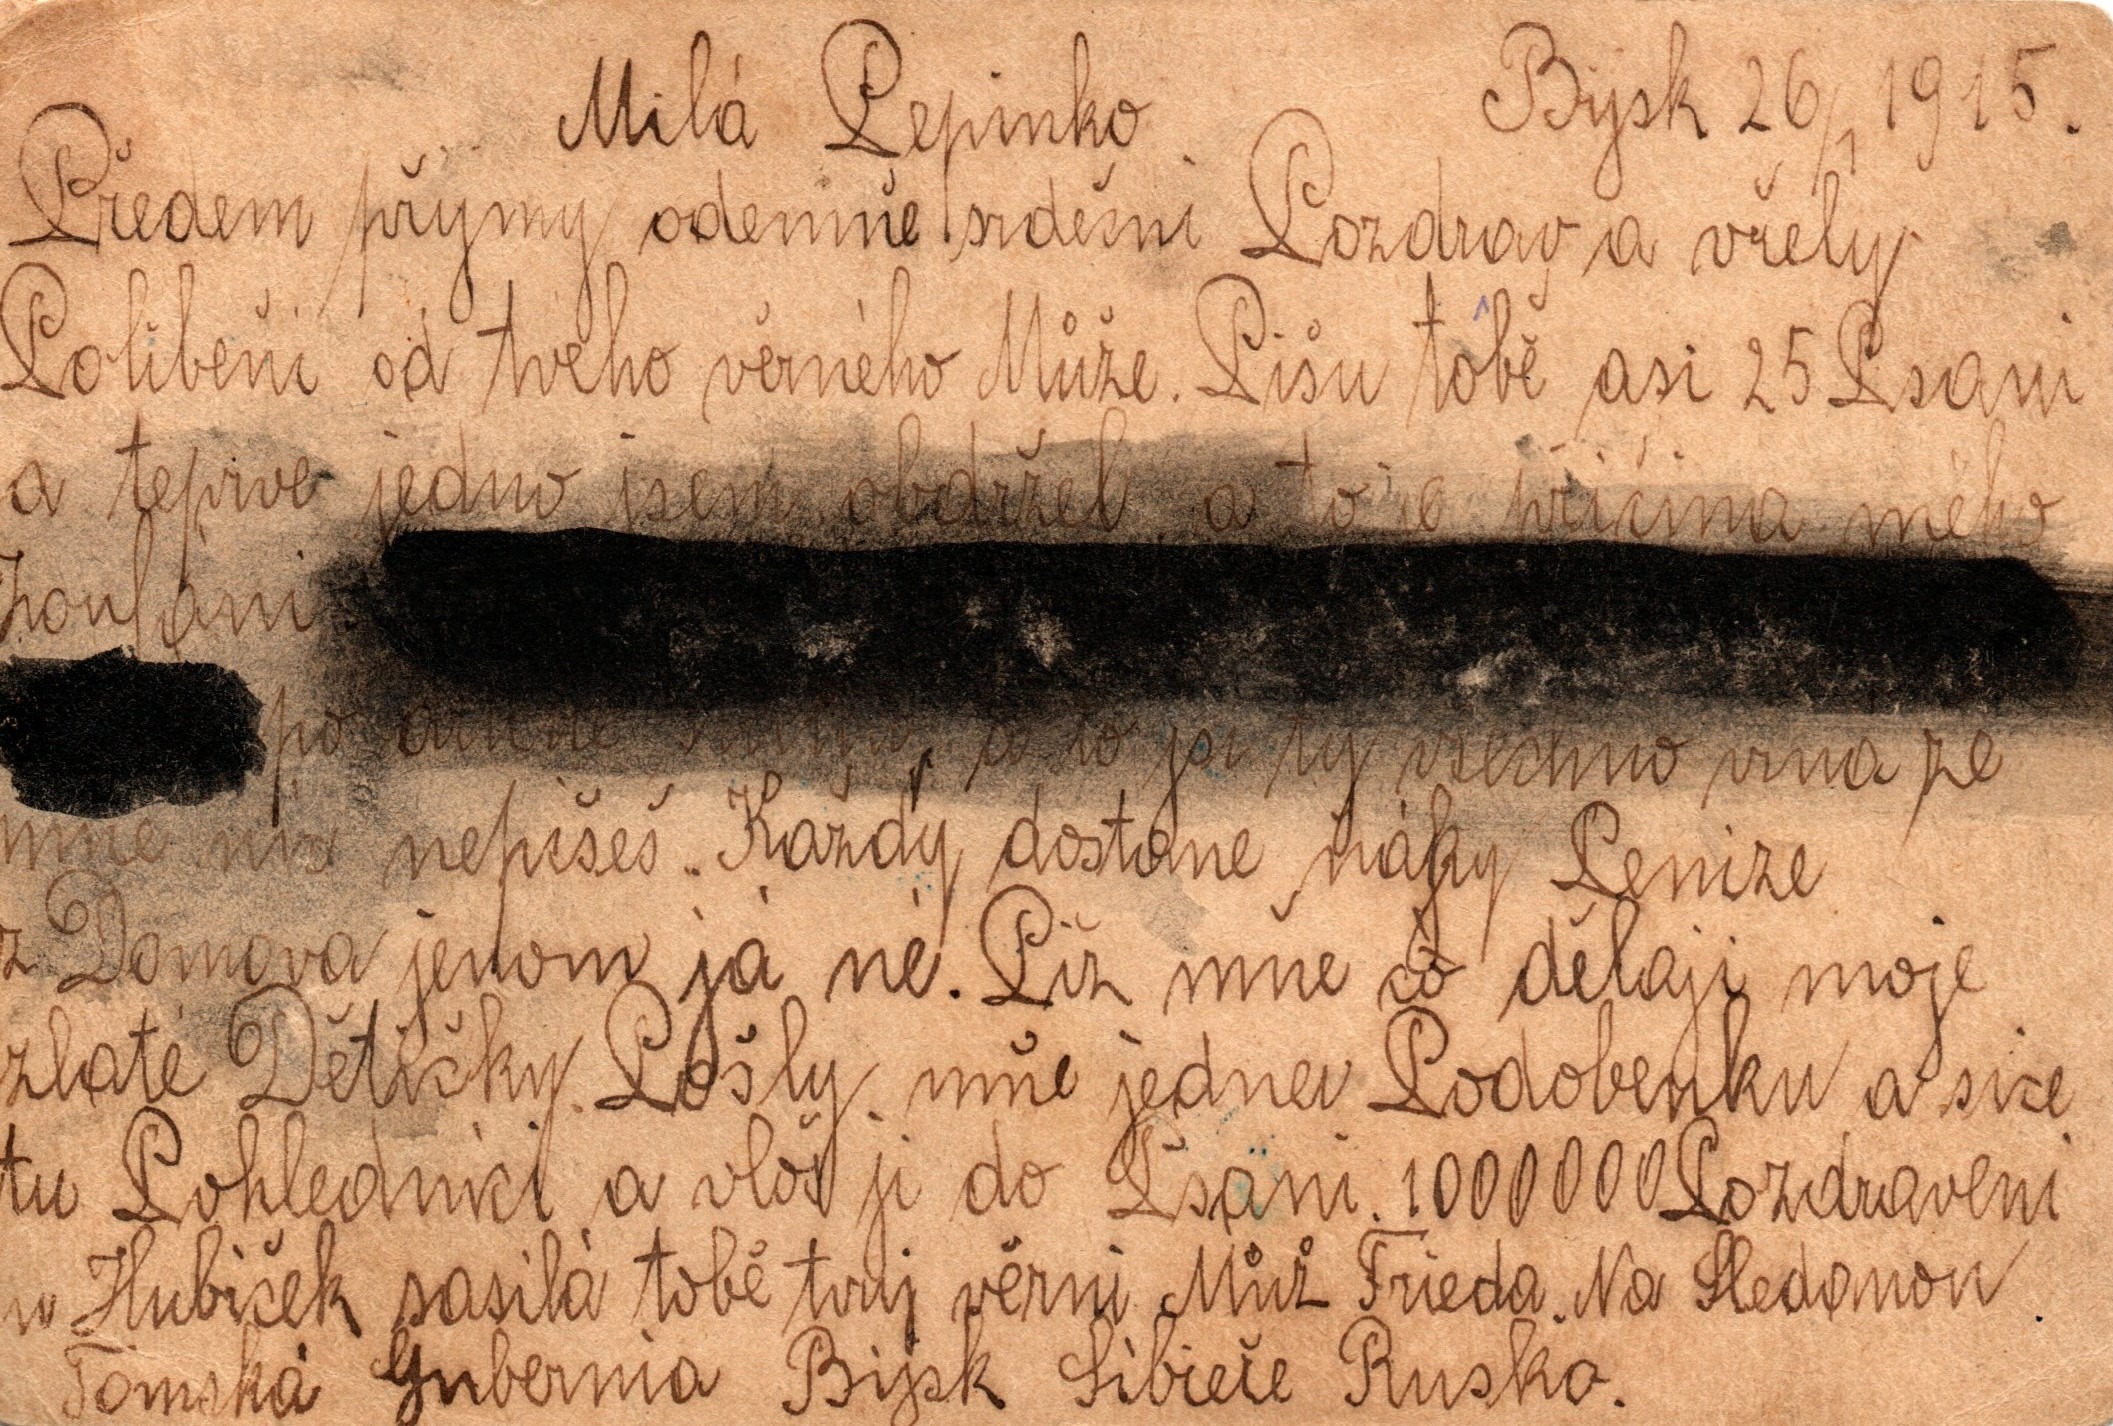 Milá Pepinko Bijsk 26/1 1915.
Předem přijmy odemně srdečni Pozdrav a vřely
Polibeni od tveho věrného Může. Pišu tobě asi 25 Psani
a teprve jedno jsem obdržel a to je přičina mého
zoufáni
po a to jsi ty všechno vina že
mně nic nepišeš. Každý dostane náky Penize
z Domova jenom já né. Piž mně co dělaji moje
zlaté Dětičky. Pošly mňe jednu Podobenku a sice
tu Pohlednici a vlož ji do Psani. 1000000 Pozdraveni
a Hubiček sasilá tobě tvuj věrni Můž Frieda. Na Shledanou
Tomská Gubernia Bijsk Sibieře Rusko.